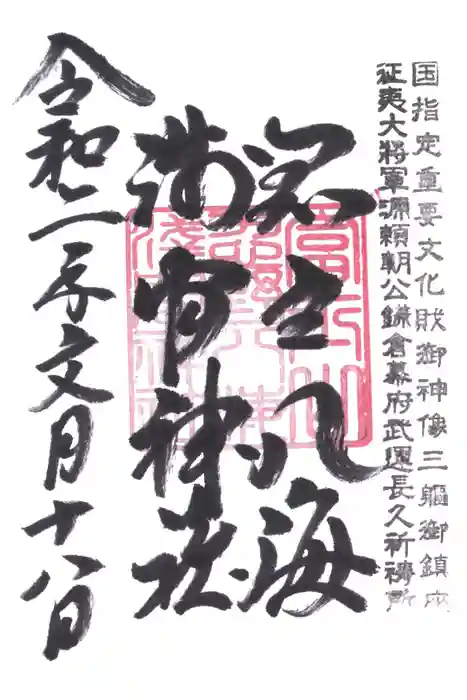 国指定重要文化財御神像三軀御鎮座
征夷大將軍源頼朝公鎌倉幕府武運長久祈祷所
八海
浅間神社
令和二年文月十八日
富士山